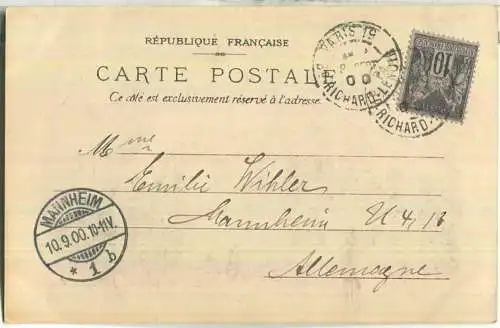 RÉPUBLIQUE FRANÇAISE
CARTE POSTALE
Ce côté est exclusivement réservé à l'adresse.
PARIS 19
00
RICHARD-LE
RICHARD
10
Mme
Emilie Wihler
Mannheim U 4, 13
Allemagne
MANNHEIM
10.9.00.10-11V.
* 1 b